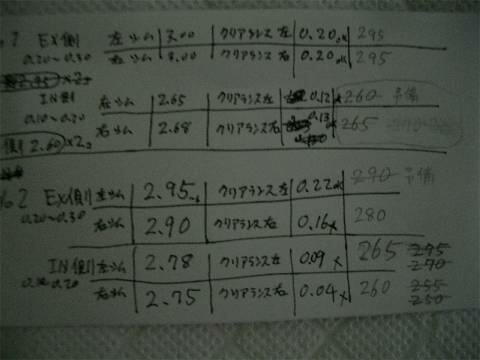 EX側 左シム 3.00 クリアランス左 0.20 ok 295
0.20〜0.30 右シム 3.00 クリアランス右 0.20 ok 295
IN側 左シム 2.65 クリアランス左 0.12 ok 260 予備
0.10〜0.20 右シム 2.68 クリアランス右 0.13 ok 265
側 2.60 ×2コ
No2 EX側 左シム 2.95 クリアランス左 0.22 ok 290 予備
0.20〜0.30 右シム 2.90 クリアランス右 0.16 × 280
IN側 左シム 2.78 クリアランス左 0.09 × 265 295 270
0.10〜0.20 右シム 2.75 クリアランス右 0.04 × 260 255 250